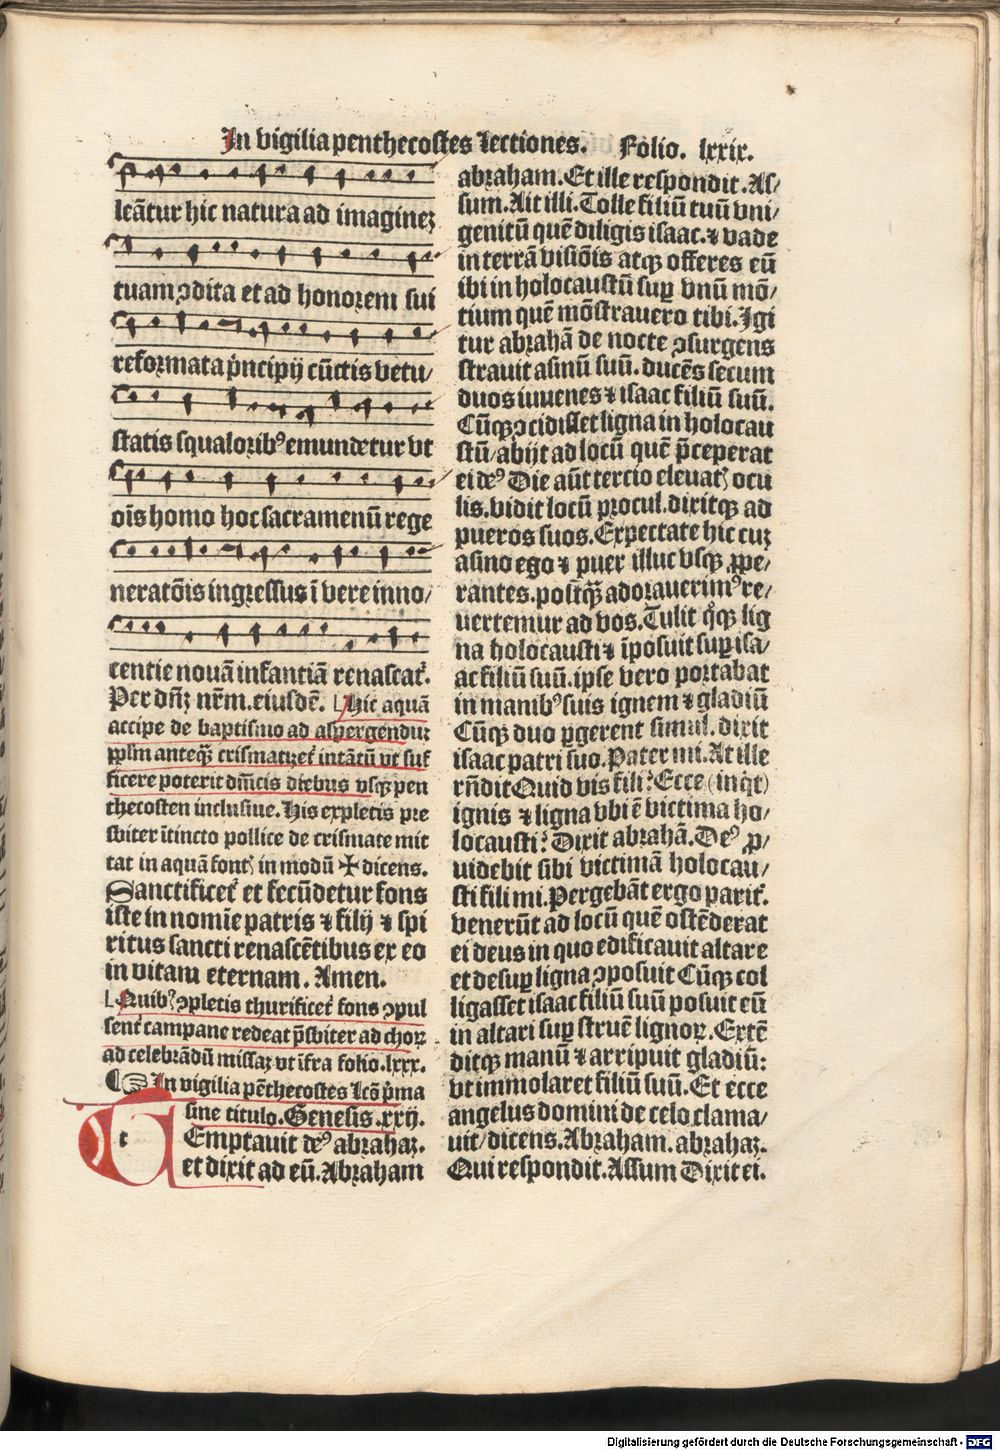 In vigilia penthecostes Lectiones. Folio. lxxix.
leãtur hic natura ad imagineʒ
tuam ꝯdita et ad honorem sui
reformata p̃ncipij cũctis vetu/
statis squaloribꝰ emundetur vt
oĩs homo hoc sacramenũ rege
neratõis ingressus ĩ vere inno/
centie nouã infantiã renascat᷑.
Per dñʒ nr̃m. eiusdẽ. Hic aquã
accipe de baptismo ad aspergenduʒ
pp̃lm anteqᷓ crismatʒet᷑ intãtũ vt suf
ficere poterit dñicis diebus vsqꝫ pen
thecosten inclusiue. His expletis pre
sbiter ĩtincto pollice de crismate mit
tat in aquã fontꝭ in modũ ✠ dicens.
Sanctificet᷑ et fecũdetur fons
iste in nomĩe patris ⁊ filij ⁊ spi
ritus sancti renascẽtibus ex eo
in vitam eternam. Amen.
Quibꝰ ꝯpletis thurificet᷑ fons ꝯpul
sent᷑ campane redeat p̃sbiter ad choꝝ
ad celebrãdũ missaʒ vt ĩfra folio. lxxx.
¶ ☞ In vigilia pẽthecostes Lcõ p̃ma
sine titulo. Genesis. xxij.
Temptauit deꝰ abrahaʒ.
et dixit ad eũ. Abraham
abraham. Et ille respondit. As/
sum. Ait illi. Tolle filiũ tuũ vni/
genitũ quẽ diligis isaac. ⁊ vade
in terrã visiõis atqꝫ offeres eũ
ibi in holocaustũ suꝑ vnũ mõ/
tium quẽ mõstrauero tibi. Igi
tur abrahã de nocte ꝯsurgens
strauit asinũ suũ. ducẽs secum
duos iuuenes ⁊ isaac filiũ suũ.
Cũqꝫ ꝯcidisset ligna in holocau
stũ/ abijt ad locũ quẽ p̃ceperat
ei deꝰ Die aũt tercio eleuatꝭ ocu
lis. vidit locũ procul. dixitqꝫ ad
pueros suos. Expectate hic cuʒ
asino ego ⁊ puer illuc vsqꝫ ꝓpe/
rantes. postqᷓ adorauerimꝰ re/
uertemur ad vos. Tulit q̊qꝫ lig
na holocausti ⁊ ĩposuit suꝑ isa/
ac filiũ suũ. ipse vero portabat
in manibꝰ suis ignem ⁊ gladiũ
Cũqꝫ duo ꝑgerent simul. dixit
isaac patri suo. Pater mi. At ille
rñdit Quid vis fili? Ecce (inqͥt)
ignis ⁊ ligna vbi ẽ victima ho/
locausti? Dixit abrahã. Deꝰ ꝓ/
uidebit sibi victimã holocau/
sti fili mi. Pergebãt ergo parit᷑.
venerũt ad locũ quẽ ostẽderat
ei deus in quo edificauit altare
et desuꝑ ligna ꝯposuit Cũqꝫ col
ligasset isaac filiũ suũ posuit eũ
in altari suꝑ struẽ lignoꝝ. Extẽ
ditqꝫ manũ ⁊ arripuit gladiũ:
vt immolaret filiũ suũ. Et ecce
angelus domini de celo clama/
uit/ dicens. Abraham. abrahaʒ.
Qui respondit. Assum Dixit ei.
Digitalisierung gefördert durch die Deutsche Forschungsgemeinschaft - DFG